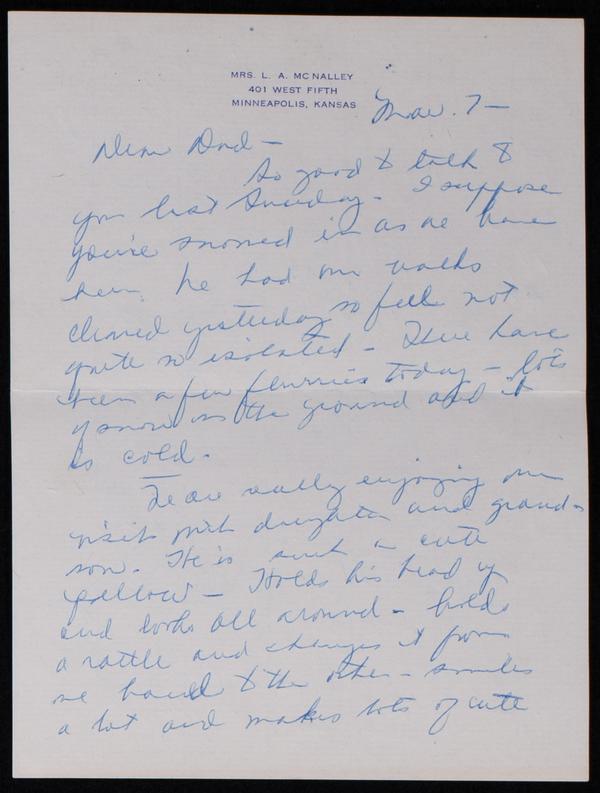 MRS. L. A. MCNALLEY
401 WEST FIFTH
MINNEAPOLIS, KANSAS
Mar. 7 —
Dear Dad —
So good to talk to
you last Sunday. I suppose
you're snowed in as we have
been. We had our walks
cleared yesterday so feel not
quite so isolated — There have
been a few flurries today — lots
of snow on the ground and it
is cold.
We are really enjoying our
visit with daughter and grand-
son. He is such a cute
fellow — Holds his head up
and looks all around — holds
a rattle and changes it from
one hand to the other — smiles
a lot and makes lots of cute